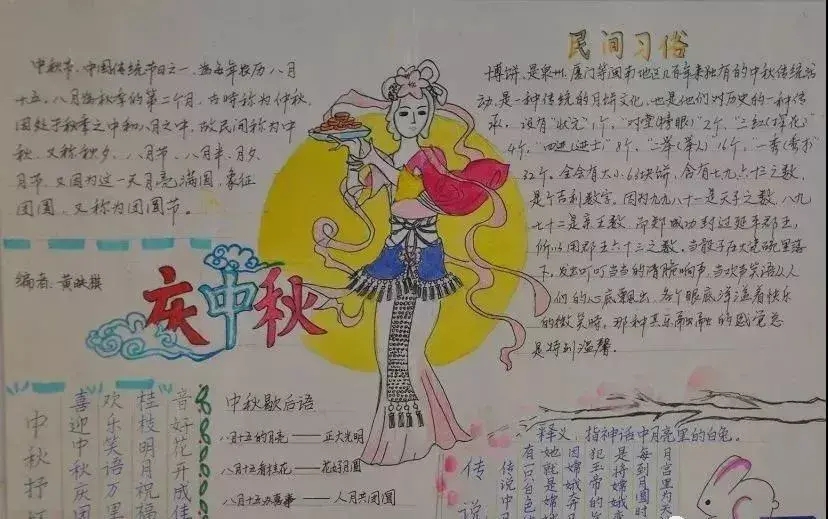 中秋节，中国传统节日之一，为每年农历八月
十五。八月为秋季的第二个月，古时称为仲秋，
因处于秋季之中和八月之中，故民间称为中
秋，又称秋夕、八月节、八月半、月夕、
月节，又因为这一天月亮满圆，象征
团圆，又称为团圆节。
编者：黄
庆中秋
民间习俗
博饼，是泉州、厦门等闽南地区几百年来独有的中秋传统活
动，是一种传统的月饼文化，也是他们对历史的一种传
承。设有"状元"1个，"对堂(榜眼)"2个，"三红(探花)"
4个，"四进(进士)"8个，二举(举人)16个，一秀(秀才)
32个。全会有大小63块饼，含有七九六十三之数，
是个吉利数字，因为九九八十一是天子之数，八九
七十二是亲王数，而郑成功封过延平郡王，
所以用郡王六十三之数。当骰子历大瓷碗里落
下，发出叮叮当当的清脆响声，当欢声笑语从人
们的心底飘出，各个眼底洋溢着快乐
的微笑时，那种其乐融融的感觉总
是特别温馨。
中秋抒
喜迎中秋庆团
欢乐笑语万里
桂枝明月祝福
音好花开成佳
中秋歇后语
八月十五的月亮——正大光明
八月十五看桂花——花好月圆
八月十五办喜事——人月共团圆
释义：指神话中月亮里的白兔。
传说
月宫里为天
每到月圆时
是将嫦娥
犯玉帝的
因嫦娥奔月
她就是嫦娥
有一只白色
传说中月